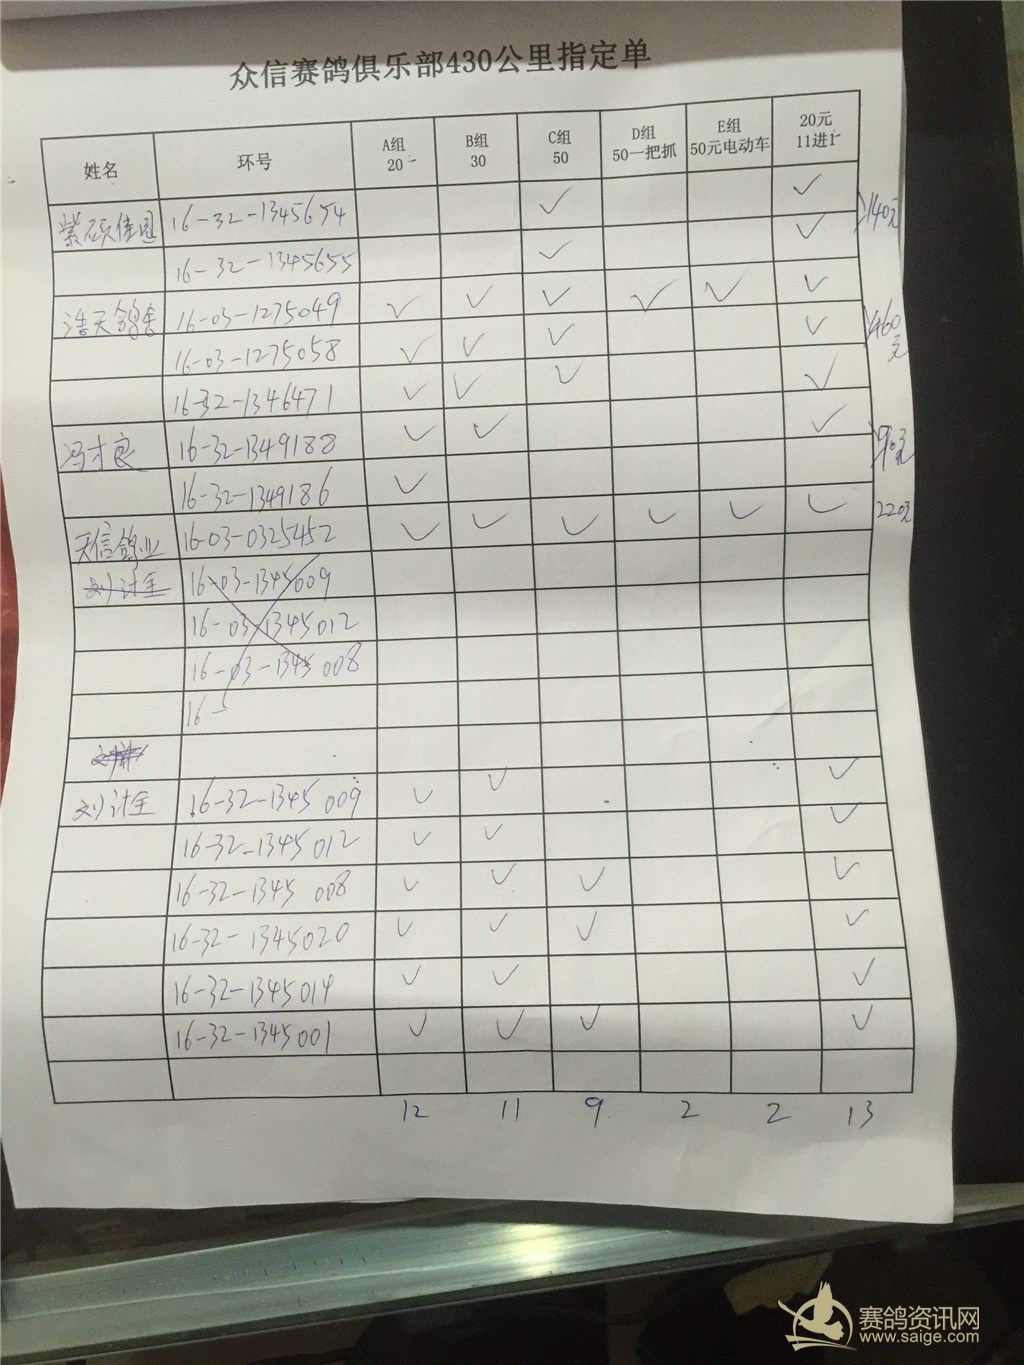 众信赛鸽俱乐部430公里指定单
姓名 环号 A组 20 B组 30 C组 50 D组 50一把抓 E组 50元电动车 20元 11进1
紫硕佳园 16-32-1345654 ✓ ✓
140元
16-32-1345655 ✓ ✓
浩天鸽舍 16-03-1275049 ✓ ✓ ✓ ✓ ✓ ✓
16-03-1275058 ✓ ✓ ✓ ✓
460元
16-32-1346471 ✓ ✓ ✓ ✓
冯才良 16-32-1349188 ✓ ✓ ✓
90元
16-32-1349186 ✓
天信鸽业 16-03-0325452 ✓ ✓ ✓ ✓ ✓ ✓ 220元
刘计全 16-03-1345009
16-03-1345012
16-03-1345008
16-
刘计全 16-32-1345009 ✓ ✓ ✓
16-32-1345012 ✓ ✓ ✓
16-32-1345008 ✓ ✓ ✓ ✓
16-32-1345020 ✓ ✓ ✓ ✓
16-32-1345014 ✓ ✓ ✓
16-32-1345001 ✓ ✓ ✓ ✓
12 11 9 2 2 13
赛鸽资讯网
www.saige.com